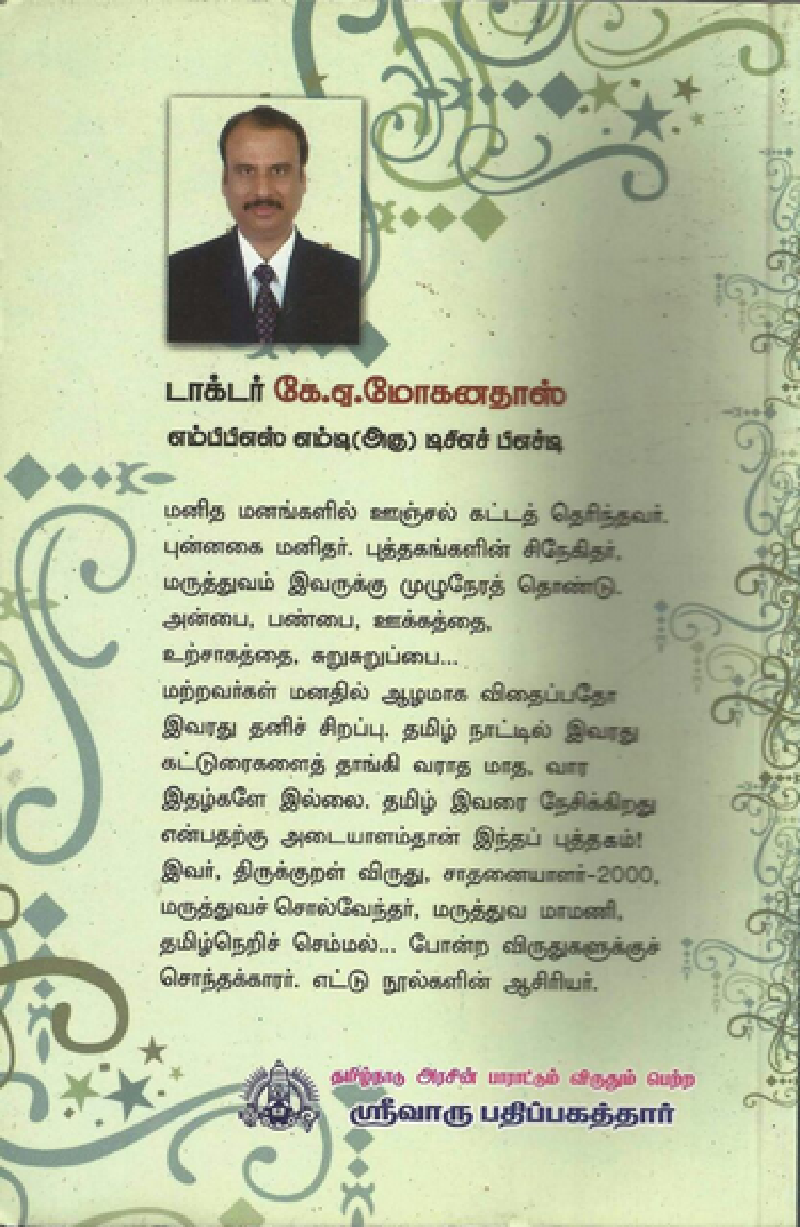 டாக்டர் கே.ஏ.மோகனதாஸ்
எம்பிபிஎஸ் எம்டி(அகு) டிசிஎச் பிஎச்டி
மனித மனங்களில் ஊஞ்சல் கட்டத் தெரிந்தவர்.
புன்னகை மனிதர். புத்தகங்களின் சிநேகிதர்.
மருத்துவம் இவருக்கு முழுநேரத் தொண்டு.
அன்பை, பண்பை, ஊக்கத்தை,
உற்சாகத்தை, சுறுசுறுப்பை...
மற்றவர்கள் மனதில் ஆழமாக விதைப்பதோ
இவரது தனிச் சிறப்பு. தமிழ் நாட்டில் இவரது
கட்டுரைகளைத் தாங்கி வராத மாத, வார
இதழ்களே இல்லை. தமிழ் இவரை நேசிக்கிறது
என்பதற்கு அடையாளம்தான் இந்தப் புத்தகம்!
இவர், திருக்குறள் விருது, சாதனையாளர்-2000,
மருத்துவச் சொல்வேந்தர், மருத்துவ மாமணி,
தமிழ்நெறிச் செம்மல்... போன்ற விருதுகளுக்குச்
சொந்தக்காரர். எட்டு நூல்களின் ஆசிரியர்.
தமிழ்நாடு அரசின் பாராட்டும் விருதும் பெற்ற
ஸ்ரீவாரு பதிப்பகத்தார்